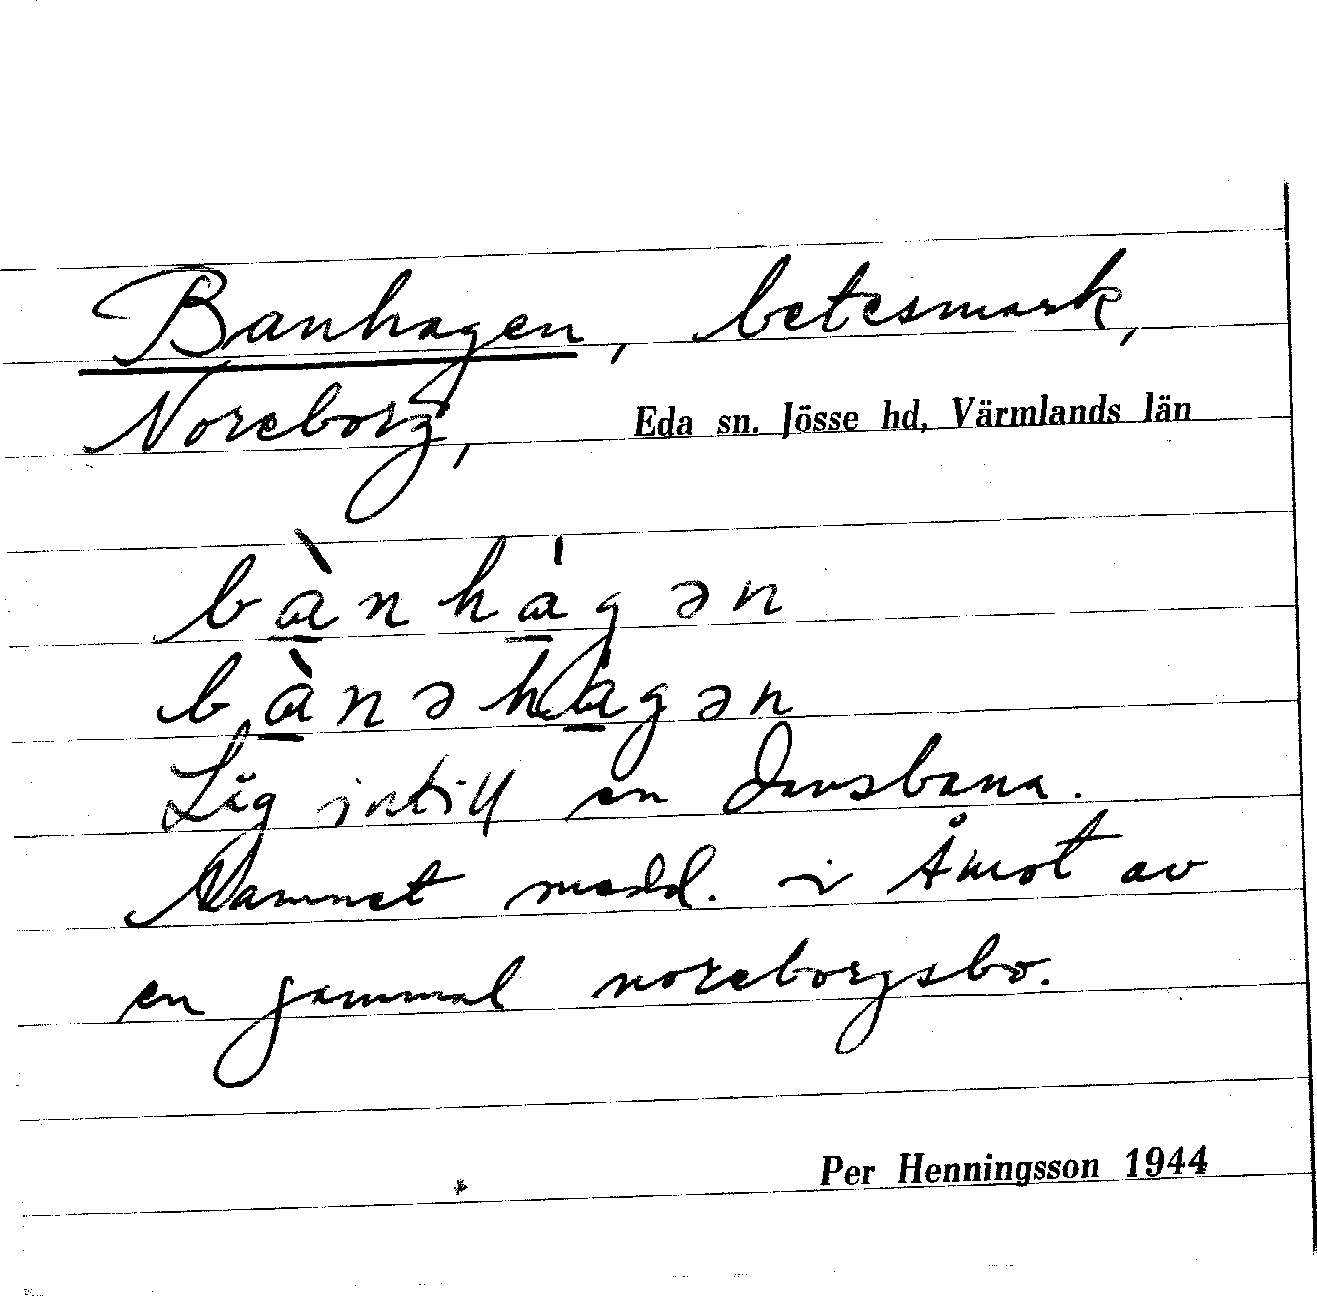 Banhagen, betesmark,
Noreborg, Eda sn. Jösse hd, Värmlands län
bà̱nhá̱gən
bà̱nəhá̱gən
Låg intill en dansbana.
Namnet medd. i Åmot av
en gammal noreborgsbo.
Per Henningsson 1944